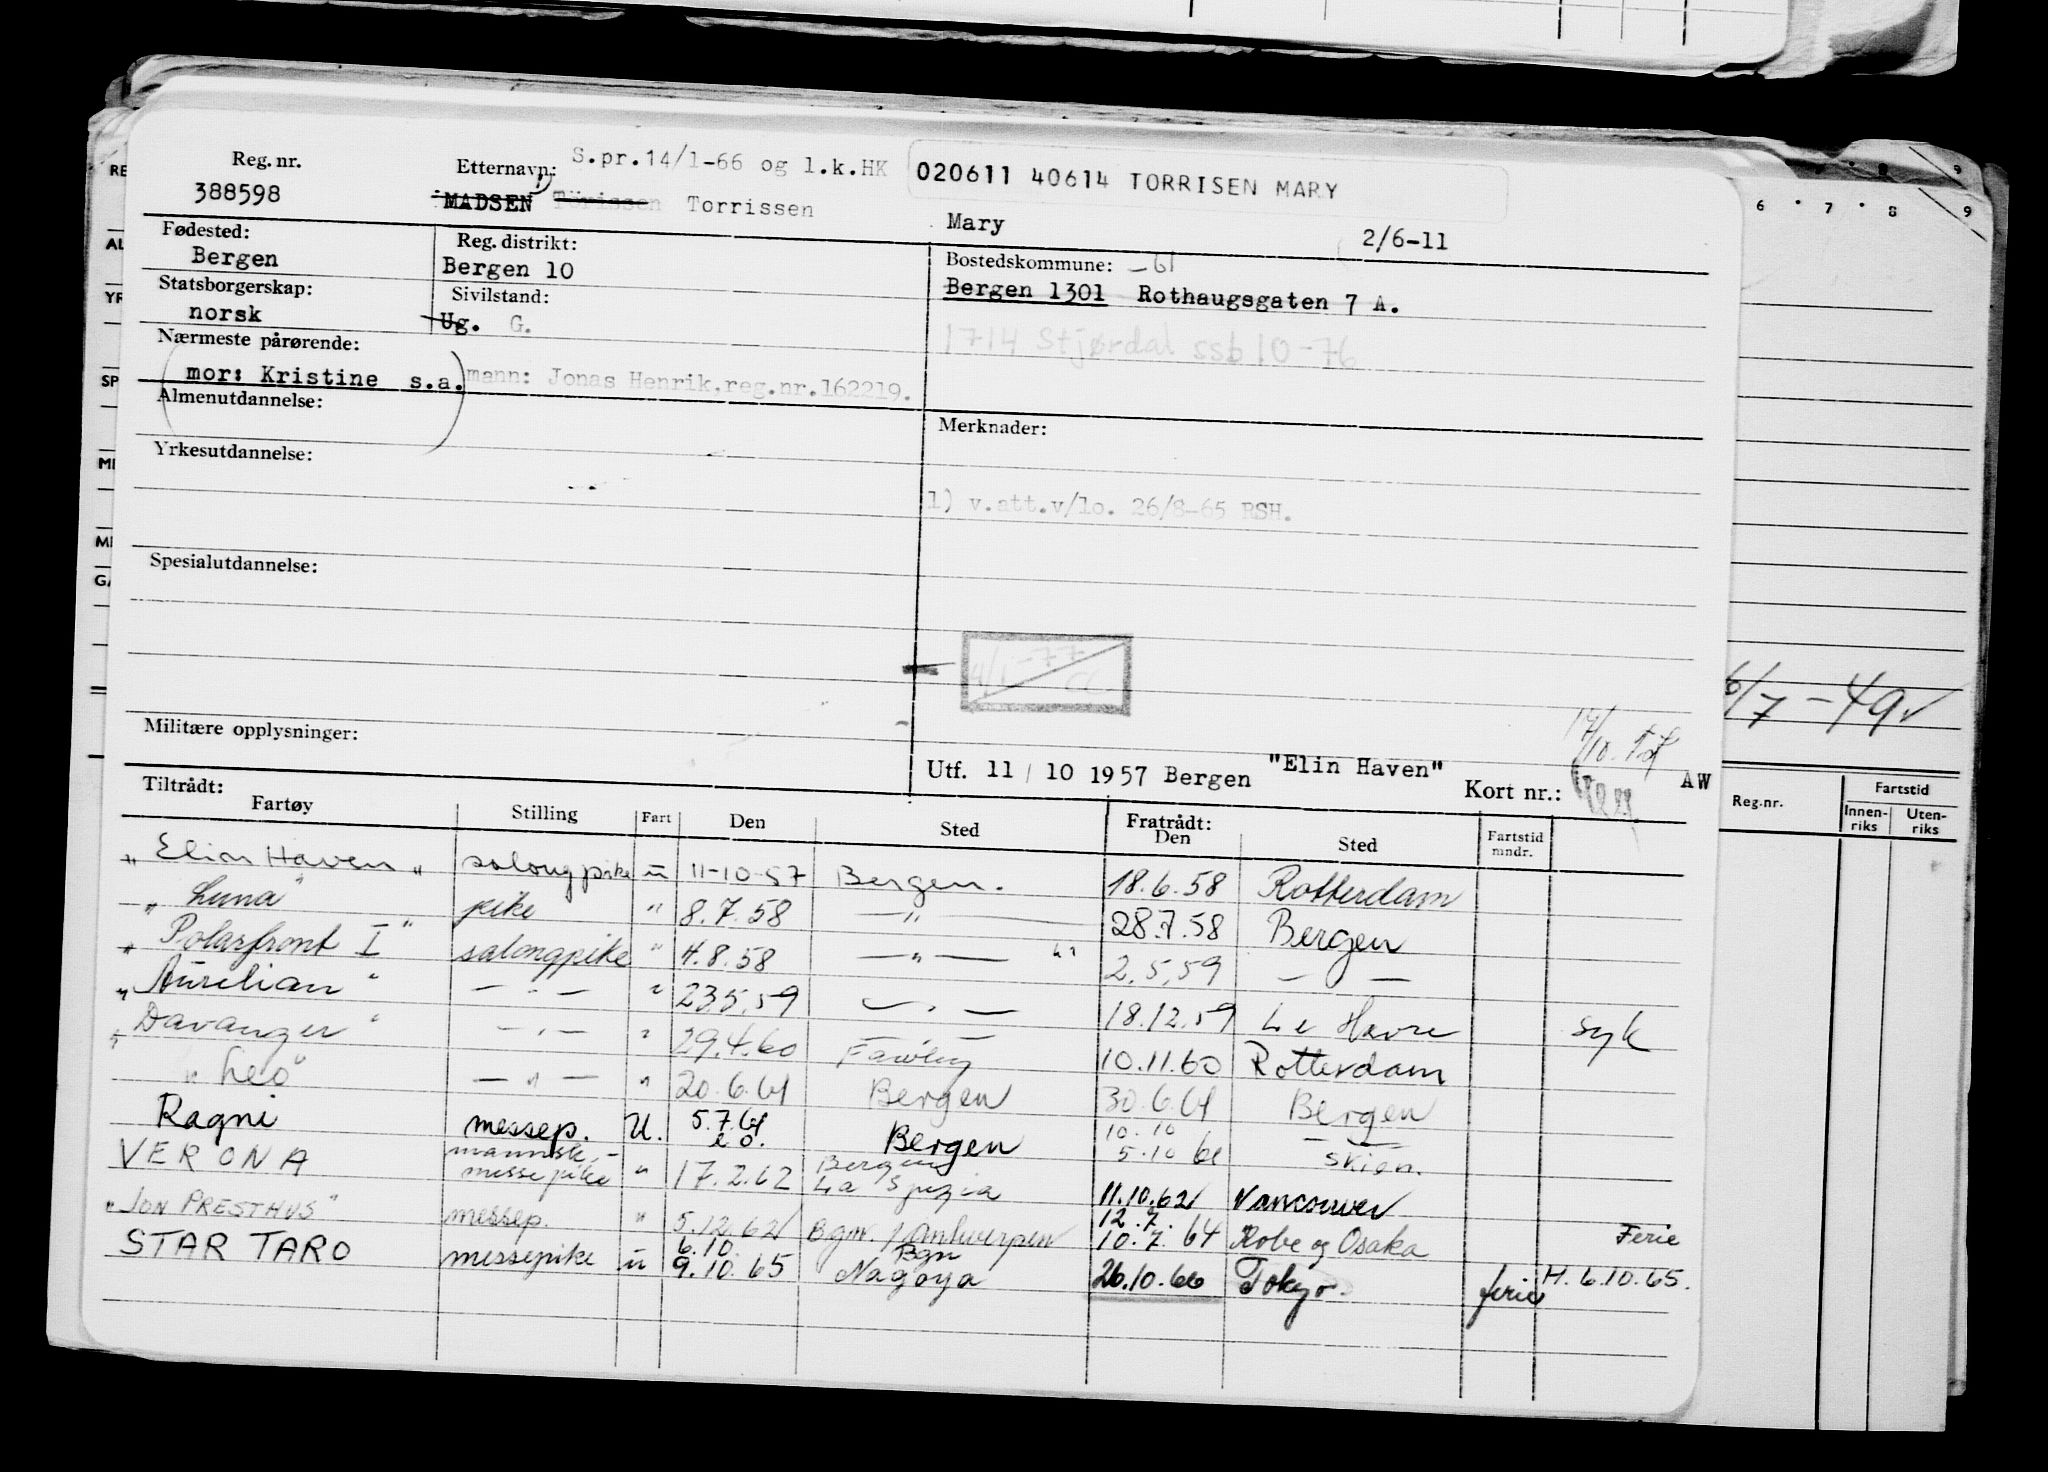 Reg. nr.
388598
Etternavn: S.pr.14/1-66 og l.k.HK
020611 40614 TORRISEN MARY
MADSEN 1) Törissen Torrissen
Mary 2/6-11
Fødested:
Bergen
Reg. distrikt:
Bergen 10
Bostedskommune: -61
Bergen 1301 Rothaugsgaten 7 A.
Statsborgerskap:
norsk
Sivilstand:
Ug. G.
1714 Stjørdal ssb 10-76
Nærmeste pårørende:
mor: Kristine s.a. mann: Jonas Henrik, reg.nr.162219.
Almenutdannelse:
Merknader:
Yrkesutdannelse:
1) v.att.v/lo. 26/8-65 RSH.
Spesialutdannelse:
4/1-77
CC.
Militære opplysninger:
Utf. 11/10 1957 Bergen "Elin Haven" Kort nr.: AW
17/10.
Tiltrådt:
Fartøy Stilling Fart Den Sted
Fratrådt:
Den Sted Fartstid mndr.
"Elin Haven" salongpike u 11-10-57 Bergen. 18.6.58 Rotterdam
"Luna" pike " 8.7.58 — " — 28.7.58 Bergen
"Polarfront I" salongpike " 4.8.58 — " — 2.5.59 — —
"Aurelian" — " — " 23.5.59 — " — 18.12.59 Le Havre syk
"Davanger" — " — " 29.4.60 Fawley 10.11.60 Rotterdam
"Leo" — " — " 20.6.61 Bergen 30.6.61 Bergen
Ragni messep. U. 5.7.61 Bergen 10.10 5.10 61 Skien.
VERONA mannsk.-messepike " 17.2.62 Bergen La Spezia 11.10.62 Vancouver
"JON PRESTHUS" messep. " 5.12.62 Bgn. / Antwerpen 12.7. 10.7.64 Kobe og Osaka Ferie
STAR TARO messepike u 6.10. 9.10.65 Bgn Nagoya 26.10.66 Tokyo. ferie H. 6.10.65.
6/7-49
Reg.nr.
Fartstid
Innen-riks
Uten-riks
6 7 8 9